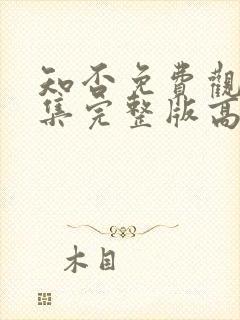 知否免費觀
集完整版高
木目